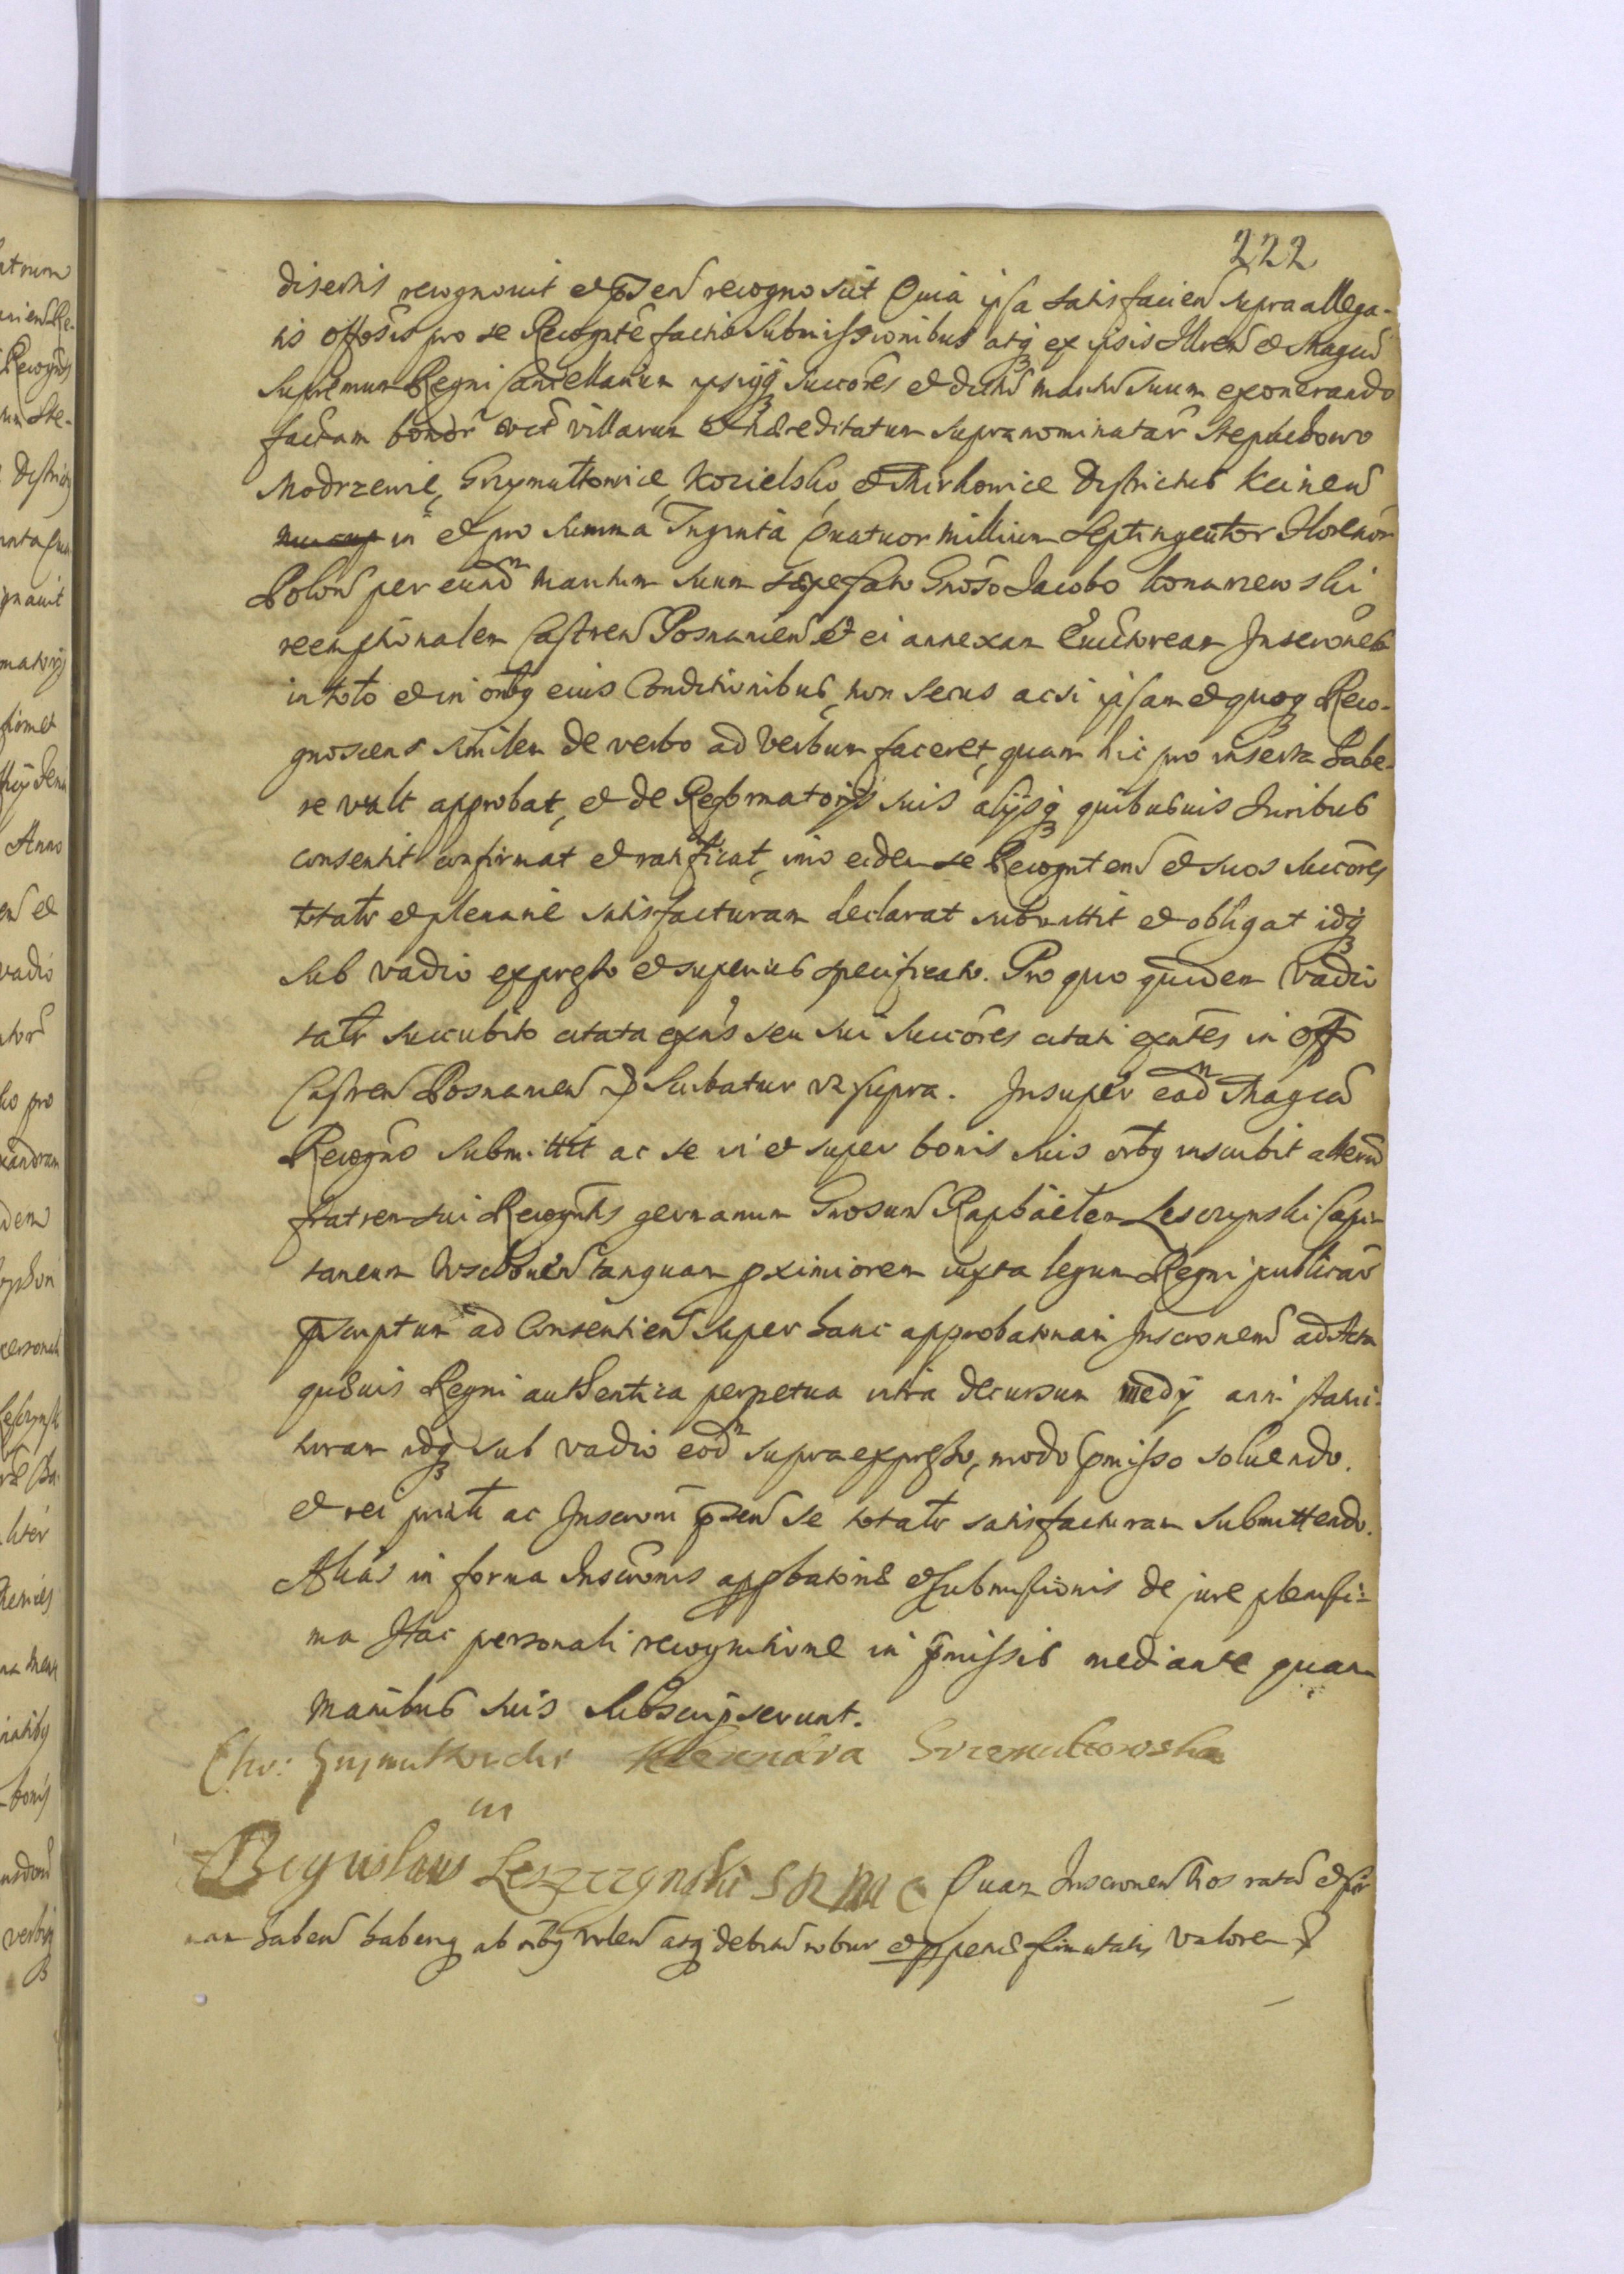 222
disertis recognovit et pñsen recognoscit Quia ipsa satisfacien supra allega-
tis offosis pro se Recognte factis Submissionibus atq ex ipsis Illren et Magcũ
Supremum Regni Cancellarium ipsiusq succores et dictũ maritũ suum exonerando
factam bonorũ videlt villarum et hæreditatum supranominatar Stepuchowo
Modrzewie, Grzymułtowice, Kozielsko, et Mirkowice Districtus Kcinen
in et pro summa Triginta Quatuor millium Septingentor Florenor
Polon per eund maritum suum sæpefato Gnoso Jacobo Konarzewski
reemptionalem Castren Posnanien et ei annexam Evictoream Inscronem
in toto et in omnbq eius Conditionibus, non secus ac si ipsam et quoq Reco-
gnoscens similem de verbo ad verbum faceret, quam hic pro inserta habe-
re vult approbat, et de Reformatorijs suis alijsq quibusvis Juribus
consentit confirmat et ratificat, imo eidem se Recognten et suos succores
totalr et plenarie satisfacturam declarat submittit et obligat idq
sub vadio expresso et superius specificato. Pro quo quidem vadio
talr succubito citata exñs seu sui succores citati exntes in Offo
Castren Posnanien Scribatur ut supra. Insuper ead Magca
Recogns submittit ac se in et super bonis suis omnbq inscribit alterũ
fratrem sui Recogntis germanum Gnosum Raphaelem Leszczynski Capi-
taneum Wschoven tanquam pximiorem iuxta legum Regni publicar
pscriptum ad Consentien super hanc approbatoriam Inscronem ad Acta
quævis Regni authentica perpetua intra decursum medij anni statui-
turam idq sub vadio eod supra expresso, modo pmisso solvendo.
et rei pnti ac Inscroni pñsen se totalr satisfacturam submittendo.
Alias in forma Inscronis approbationis et submissionis de jure plenissi-
ma Hac personali recognitione in pmissis mediante quam
manibus suis subscripserunt.
Chr: Grzymułtowski Alexandra Grzemultowska
m
Boguslaus Leszczynski S R M C Quam Inscronem nos ratã et fir
mam haben habemq ab omnbq volen atq debitũ robur et ppetuæ firmitatis valorem